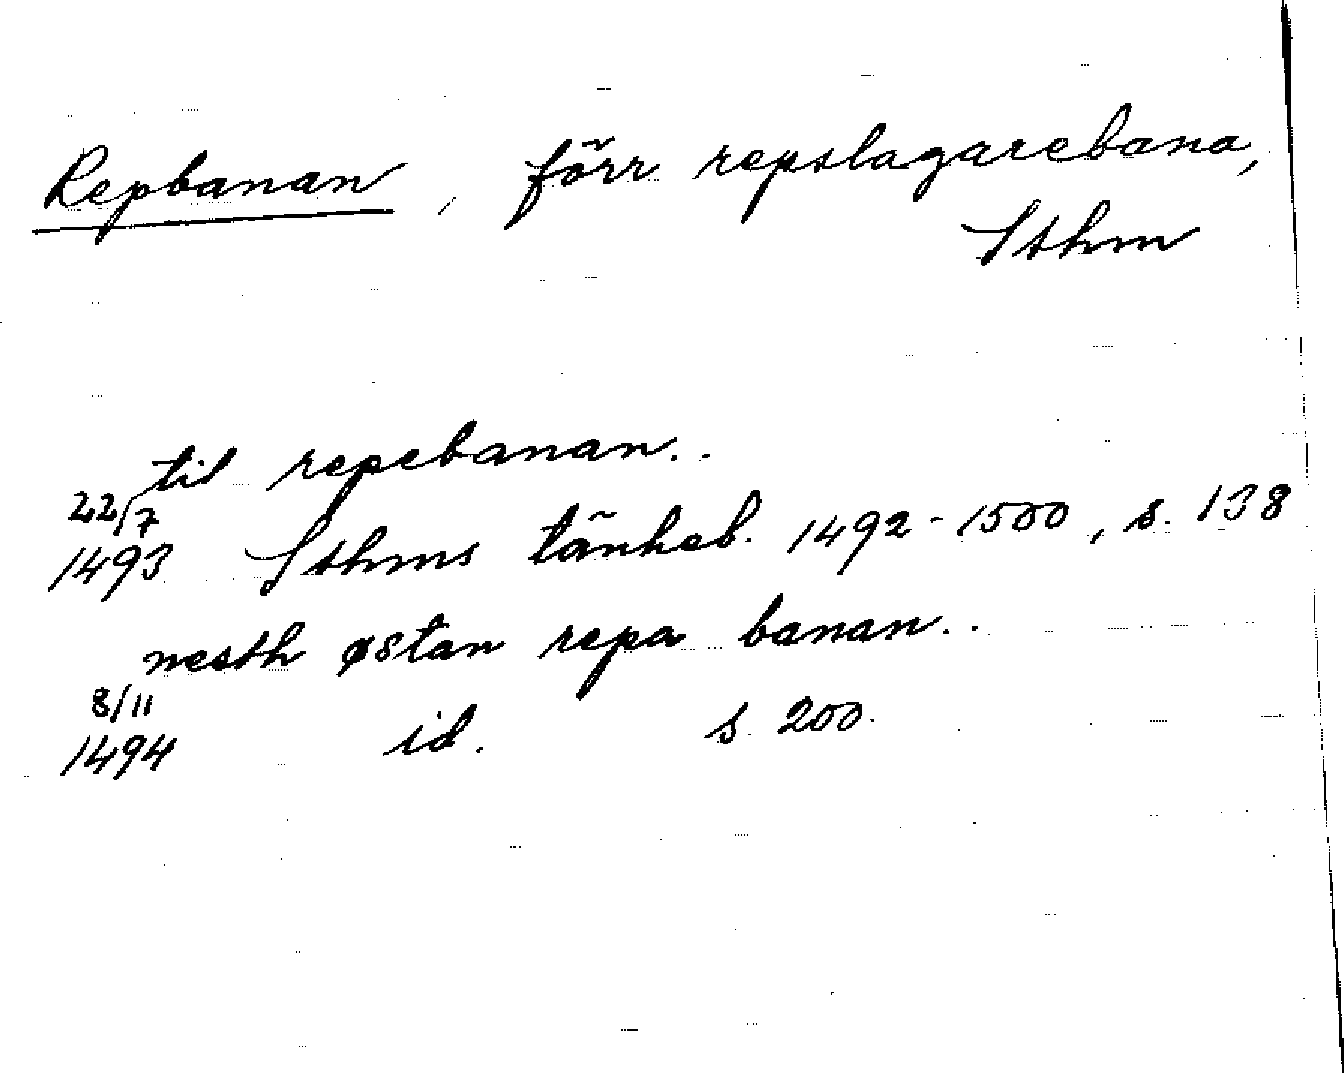 Repbanan, förr repslagarebana,
Sthm
til repebanan..
22/7
1493 Sthms tänkeb. 1492-1500, s. 138
nesth østan repa banan..
8/11
1494 id. s. 200.